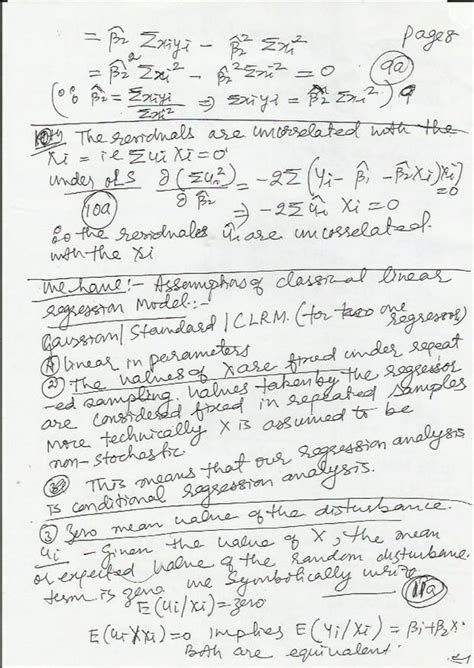 = β̂₂ Σxiyi − β̂₂² Σxi²
page 8
= β̂₂² Σxi² − β̂₂² Σxi² = 0
9a
(∵ β̂₂ = Σxiyi / Σxi² ⇒ Σxiyi = β̂₂ Σxi²)
10th The residuals are uncorrelated with the
Xi = ie Σûi Xi = 0
under OLS ∂(Σûi²) / ∂β̂₂ = −2Σ(Yi − β̂1 − β̂2Xi)(Xi) = 0
10a
⇒ −2Σ ûi Xi = 0
∴ the residuals ûi are uncorrelated
with the Xi
We have:- Assumptions of classical linear
regression Model:-
Gaussian/Standard/CLRM. (for one
regressor)
① linear in parameters
② The values of X are fixed under repeat
-ed sampling. Values taken by the regressor
are considered fixed in repeated samples
More technically X is assumed to be
non-stochastic
This means that our regression analysis
is conditional regression analysis.
③ Zero mean value of the disturbance.
ui - Given the value of X, the mean
or expected value of the random disturbance
term is zero we symbolically write
11a
E(ui/xi) = zero
E(ui/xi)=0 implies E(yi/xi) = β1+β2X
Both are equivalent.